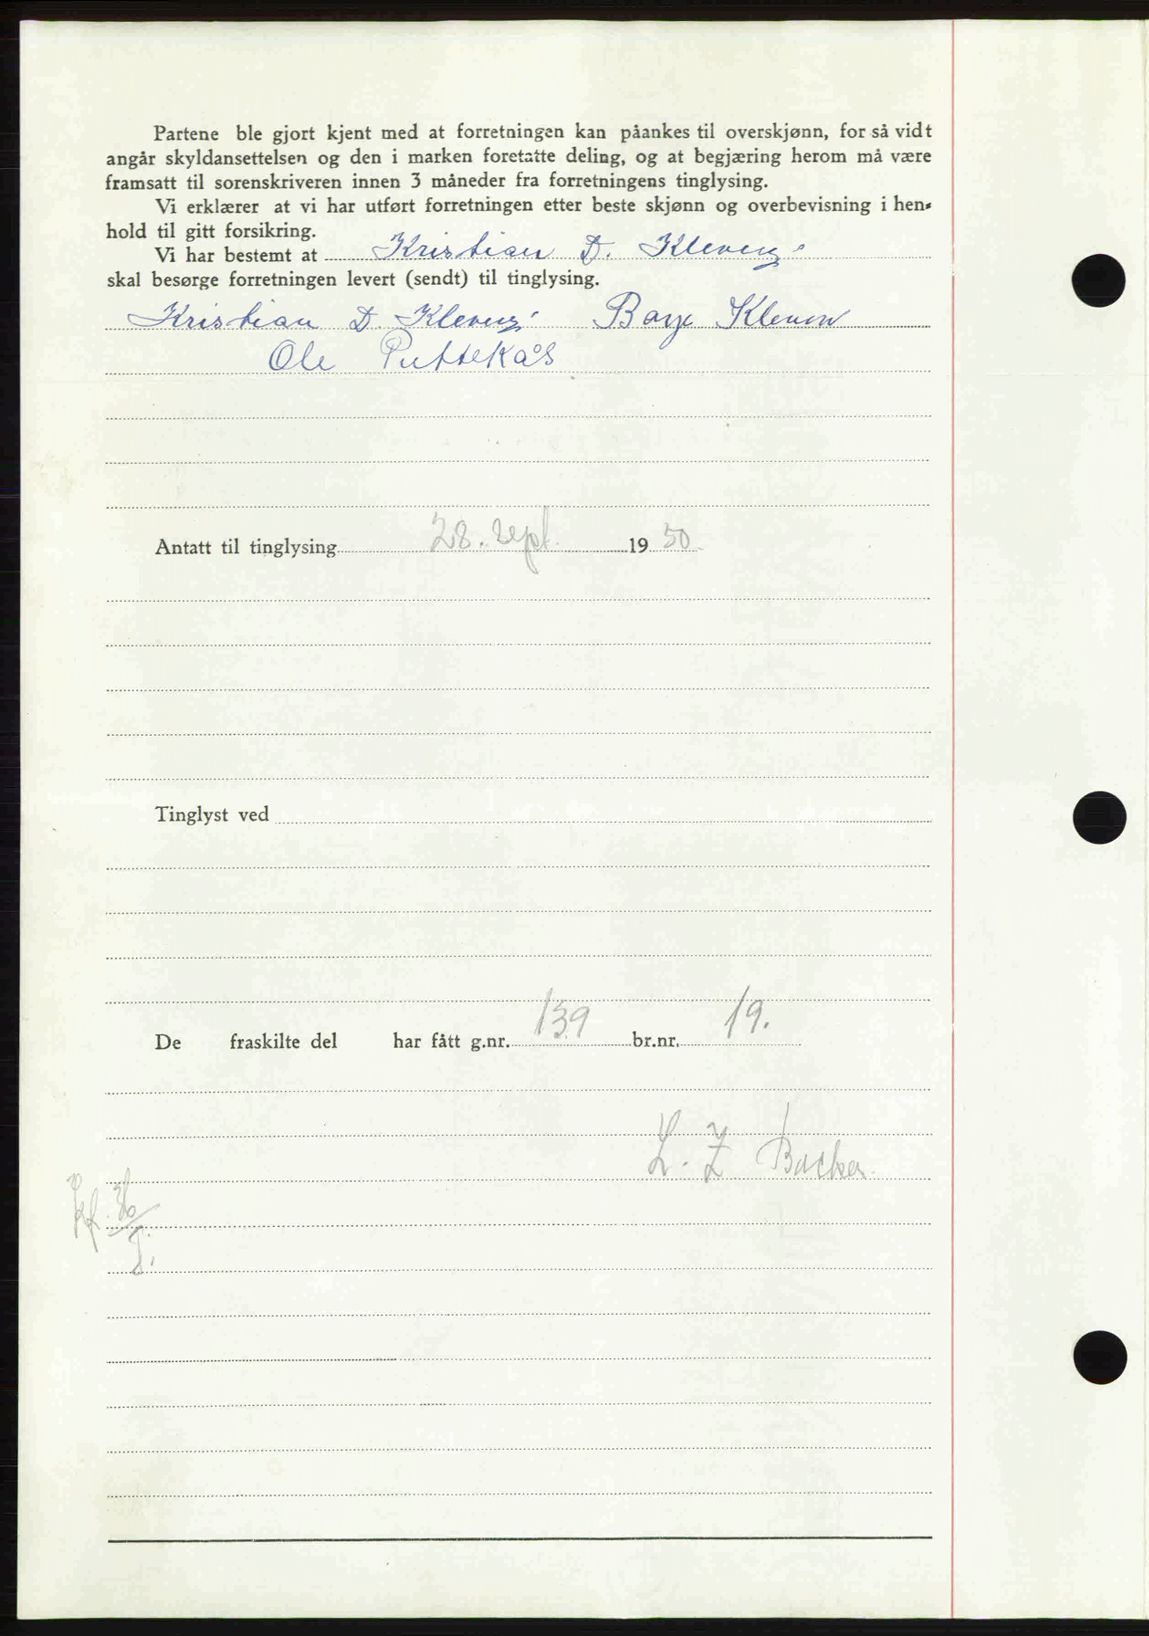 Partene ble gjort kjent med at forretningen kan påankes til overskjønn, for så vidt
angår skyldansettelsen og den i marken foretatte deling, og at begjæring herom må være
framsatt til sorenskriveren innen 3 måneder fra forretningens tinglysing.
Vi erklærer at vi har utført forretningen etter beste skjønn og overbevisning i hen-
hold til gitt forsikring.
Vi har bestemt at Kristian D. Kleven
skal besørge forretningen levert (sendt) til tinglysing.
Kristian D. Kleven Kleven
Ole Puttekås
Antatt til tinglysing 28. sept. 1950
Tinglyst ved
De fraskilte del har fått g.nr. 139 br.nr. 19.
L. Z Backer